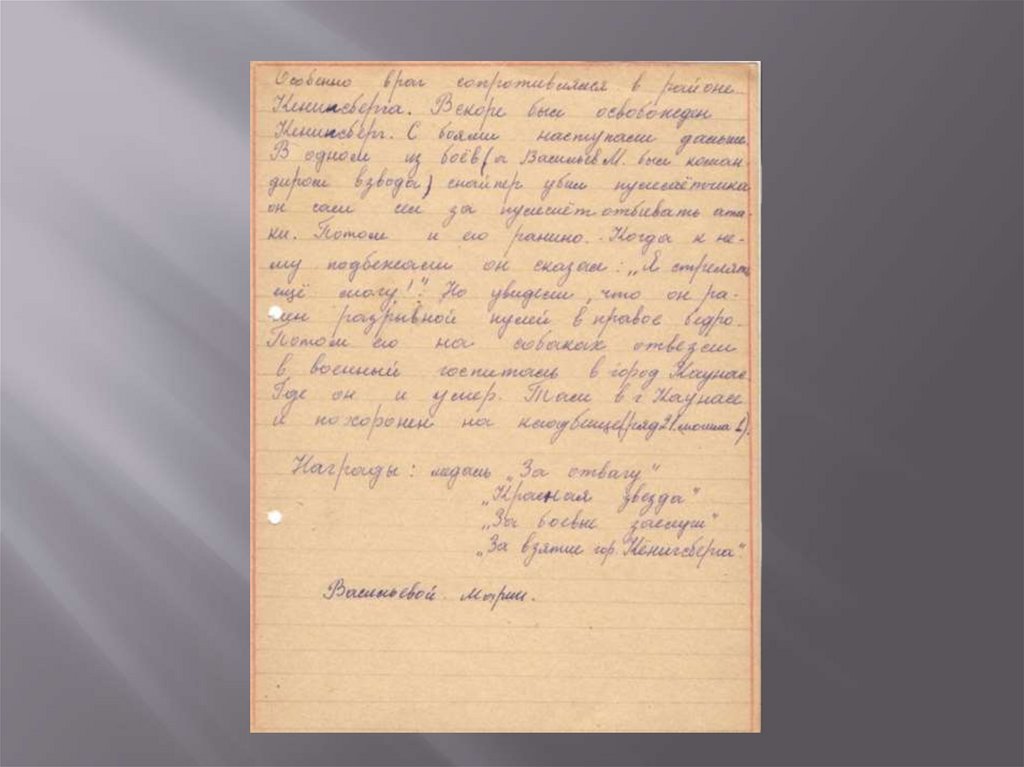 Особенно враг сопротивлялся в районе
Кенинсберга. Вскоре был освобожден
Кенинсберг. С боями наступали дальше.
В одном из боёв (а Васильев М. был коман-
диром взвода) снайпер убил пулемётчика
он сам сел за пулемёт отбивать ата-
ки. Потом и его ранило. Когда к не-
му подбежали он сказал: „Я стрелять
ещё могу!" Но увидели, что он ра-
нен разрывной пулей в правое бедро.
Потом его на собаках отвезли
в военный госпиталь в город Каунас.
Где он и умер. Там в г. Каунасе
и похоронен на кладбище (ряд 21 могила 1).
Награды: медаль „За отвагу"
„Красная звезда"
„За боевые заслуги"
„За взятие гор. Кёнигсберга"
Васильевой Марии.